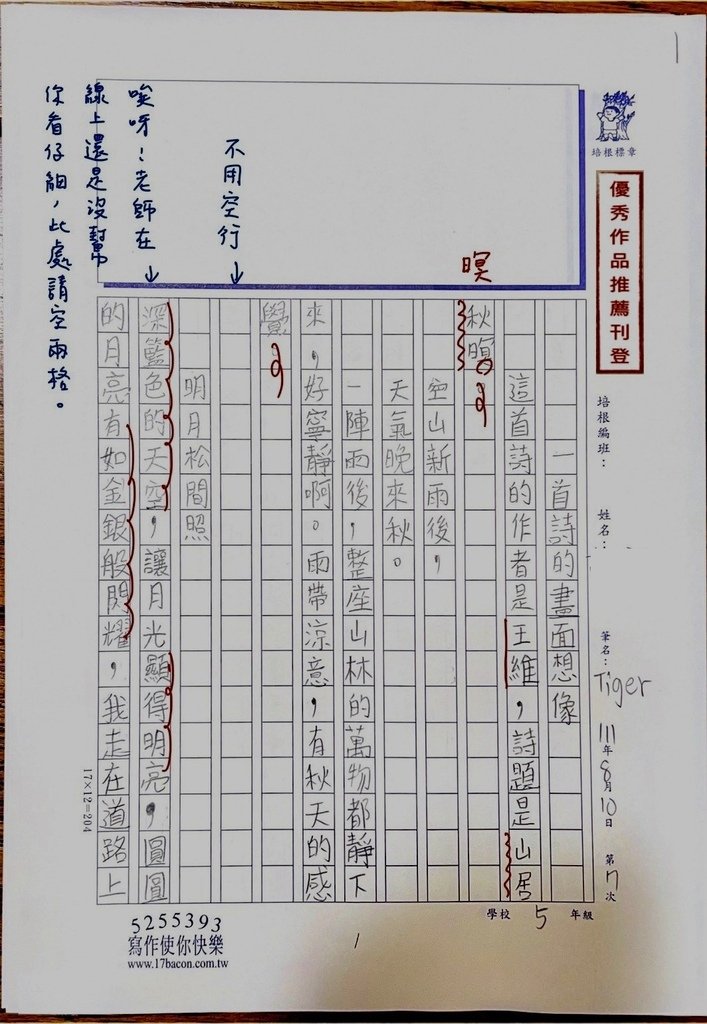 1
培根標章
優秀作品推薦刊登
培根編班：
姓名：
筆名：Tiger
111年8月10日
第7次
學校 5 年級
一首詩的畫面想像
這首詩的作者是王維，詩題是山居
秋暝。
暝
空山新雨後，
天氣晚來秋。
一陣雨後，整座山林的萬物都靜下
來，好寧靜啊。雨帶涼意，有秋天的感
覺。
不用空行↓
明月松間照
深籃色的天空，讓月光顯得明亮，圓圓
的月亮有如金銀般閃耀，我走在道路上
唉呀！老師在↓
線上還是沒幫
你看仔細，此處請空兩格。
17×12=204
5255393
寫作使你快樂
www.17bacon.com.tw
1